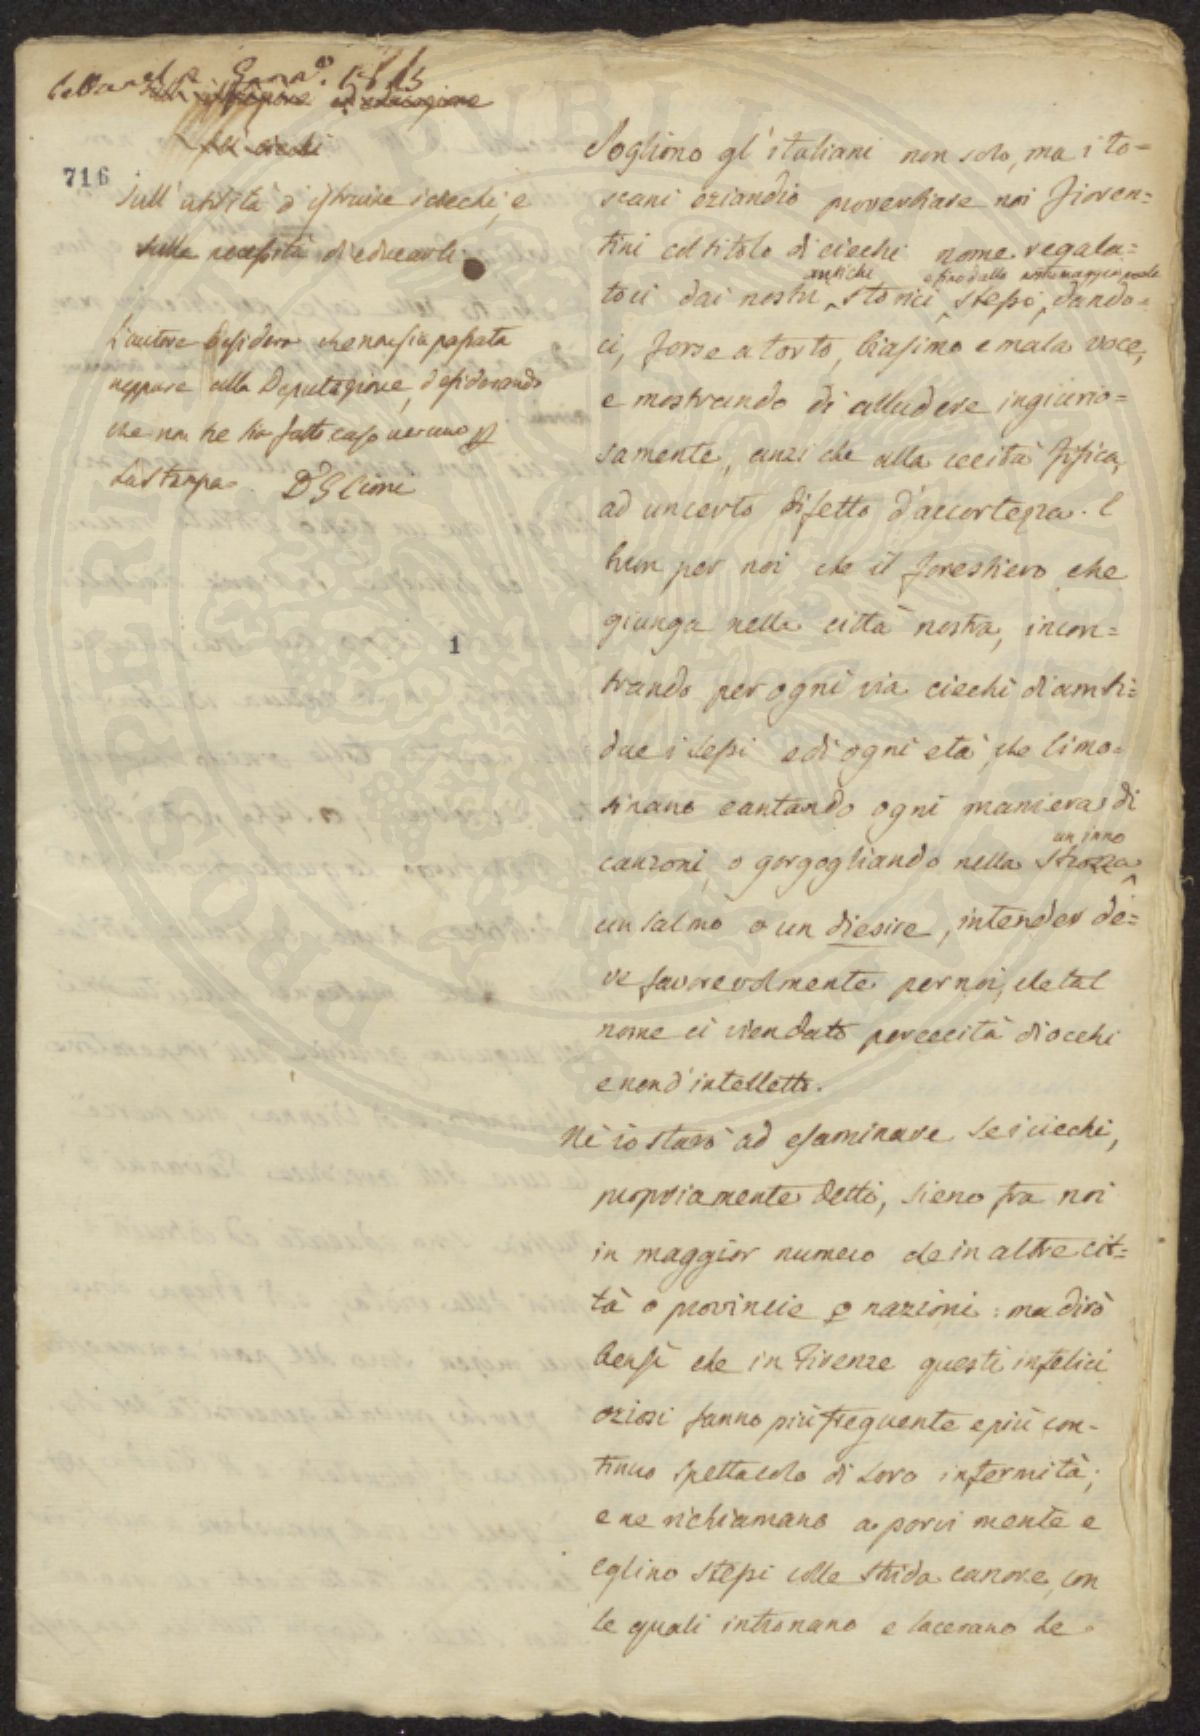 Genn.o 1815
716
Sull'utilità d'istruire i ciechi, e
sulla necessità di educarli
L'autore desidera che non sia passata
neppure alla Deputazione, desiderando
che non ne sia fatto caso veruno p
la stampa. Dr G Cioni
1
Sogliono gl'italiani non solo, ma i to=
scani eziandio proverbiare noi fioren=
tini col titolo di ciechi nome regala=
antiche
toci dai nostri storici stessi, dando=
ci, forse a torto, biasimo e mala voce,
e mostrando di alludere ingiurio=
samente, anzi che alla cecità fisica,
ad un certo difetto d'accortezza. E
buon per noi che il forestiero che
giunga nella città nostra, incon=
trando per ogni via ciechi di ambi=
due i sessi e di ogni età che limo=
sinano cantando ogni maniera di
un inno
canzoni, o gorgogliando nella strozza
un salmo o un diesire, intender de=
ve favorevolmente per noi, che tal
nome ci vien dato per cecità di occhi
e non d'intelletto.
Nè io starò ad esaminare se i ciechi,
propriamente detti, sieno fra noi
in maggior numero che in altre cit=
tà o provincie o nazioni: ma dirò
bensì che in Firenze questi infelici
oziosi fanno più frequente e più con=
tinuo spettacolo di loro infermità;
e ne richiamano a porvi mente e
eglino stessi colle strida canore, con
le quali intronano e lacerano le